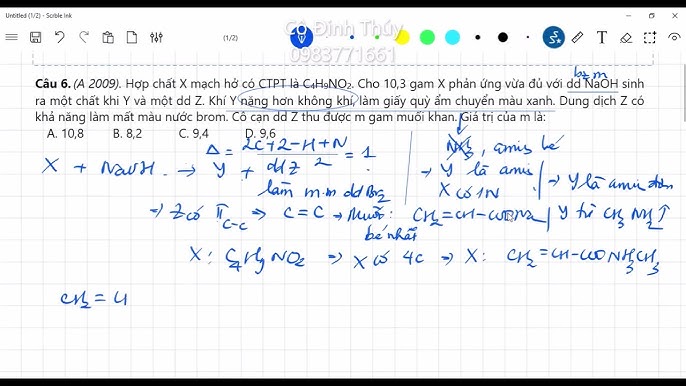 Untitled (1/2) - Scrble Ink
(1/2)
Cô Đinh Thúy
0983771661
Câu 6. (A 2009). Hợp chất X mạch hở có CTPT là C4H9NO2. Cho 10,3 gam X phản ứng vừa đủ với dd NaOH sinh
ra một chất khí Y và một dd Z. Khí Y nặng hơn không khí, làm giấy quỳ ẩm chuyển màu xanh. Dung dịch Z có
khả năng làm mất màu nước brom. Cô cạn dd Z thu được m gam muối khan. Giá trị của m là:
A. 10,8 B. 8,2 C. 9,4 D. 9,6
Δ = 2C+2-H+N / 2 = 1
NH3, amin bé
X + NaOH → Y + ddZ
làm m.m dd Br2
→ Y là amin
X có 1N
→ Y là amin đơn
⇒ Z có π C-C ⇒ C = C → Muối: CH2=CH-COONa
bé nhất
Y từ CH3NH2↑
X: C4H9NO2 ⇒ X có 4C ⇒ X: CH2=CH-COONH3CH3
CH2 =